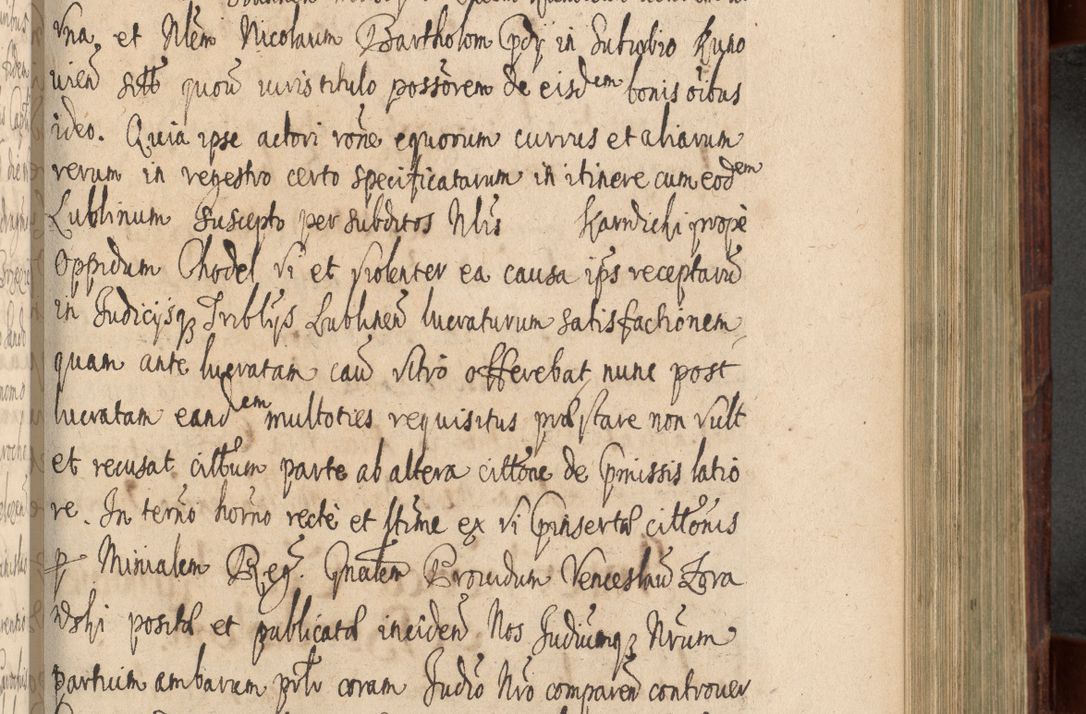 vna, et Nlem Nicolaum Barthołom Cpdy in Suburbio Kuno
uien sitt quoru iuris titulo possorem de eisdem bonis oibus
ideo. Quia ipse actori rone equorum currus et aliarum
rerum in regestro certo specificatarum in itinere cum eodem
Lublinum suscepto per subditos Nlis Karnicki prope
Oppidum Chodel vi et violenter ea causa ips receptaru
in Judicijsq Triblijs Lublinen lucraturum satisfactionem,
quam ante lucratam cau vltro offerebat nunc post
lucratam eandem multoties requisitus præstare non vult
et recusat cittum parte ab altera cittone de Pmissis latio
re. In terno horno recte et ltime ex vi Pinserta cittonis
p Minialem Reg. Gnalem Providum Venceslau Zora
wski posita et publicata inciden Nos Judiumq Nrum
partium ambarum prtr coram Judio Nro comparen controuer